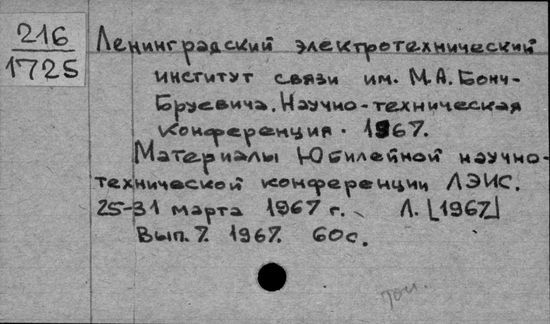 216
1725
Ленинградский электротехнический
институт связи им. М.А. Бонч-
Бруевича. Научно-техническая
конференция. 1967.
Материалы Юбилейной научно-
технической конференции ЛЭИС.
25-31 марта 1967 г. Л. [1967]
Вып. 7. 1967. 60с.